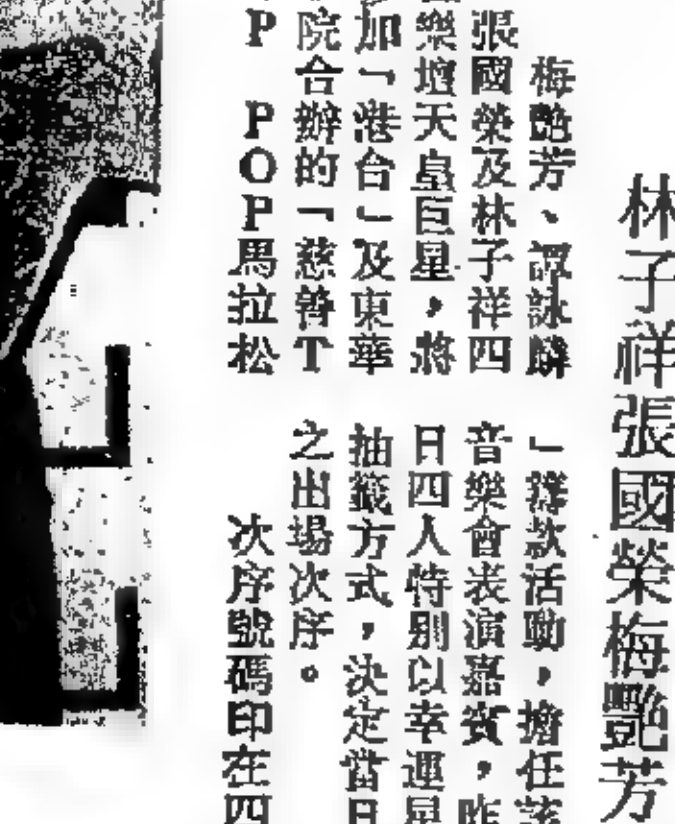 林子祥張國榮梅艷芳
梅艷芳、譚詠麟
張國榮及林子祥四
樂壇天皇巨星，將
加「港台」及東華
院合辦的「慈善T
P POP馬拉松
」籌款活動，擔任該
音樂會表演嘉賓，昨
日四人特別以幸運星
抽籤方式，決定當日
之出場次序。
次序號碼印在四